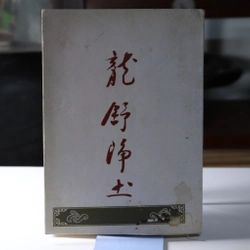 龍舒淨土